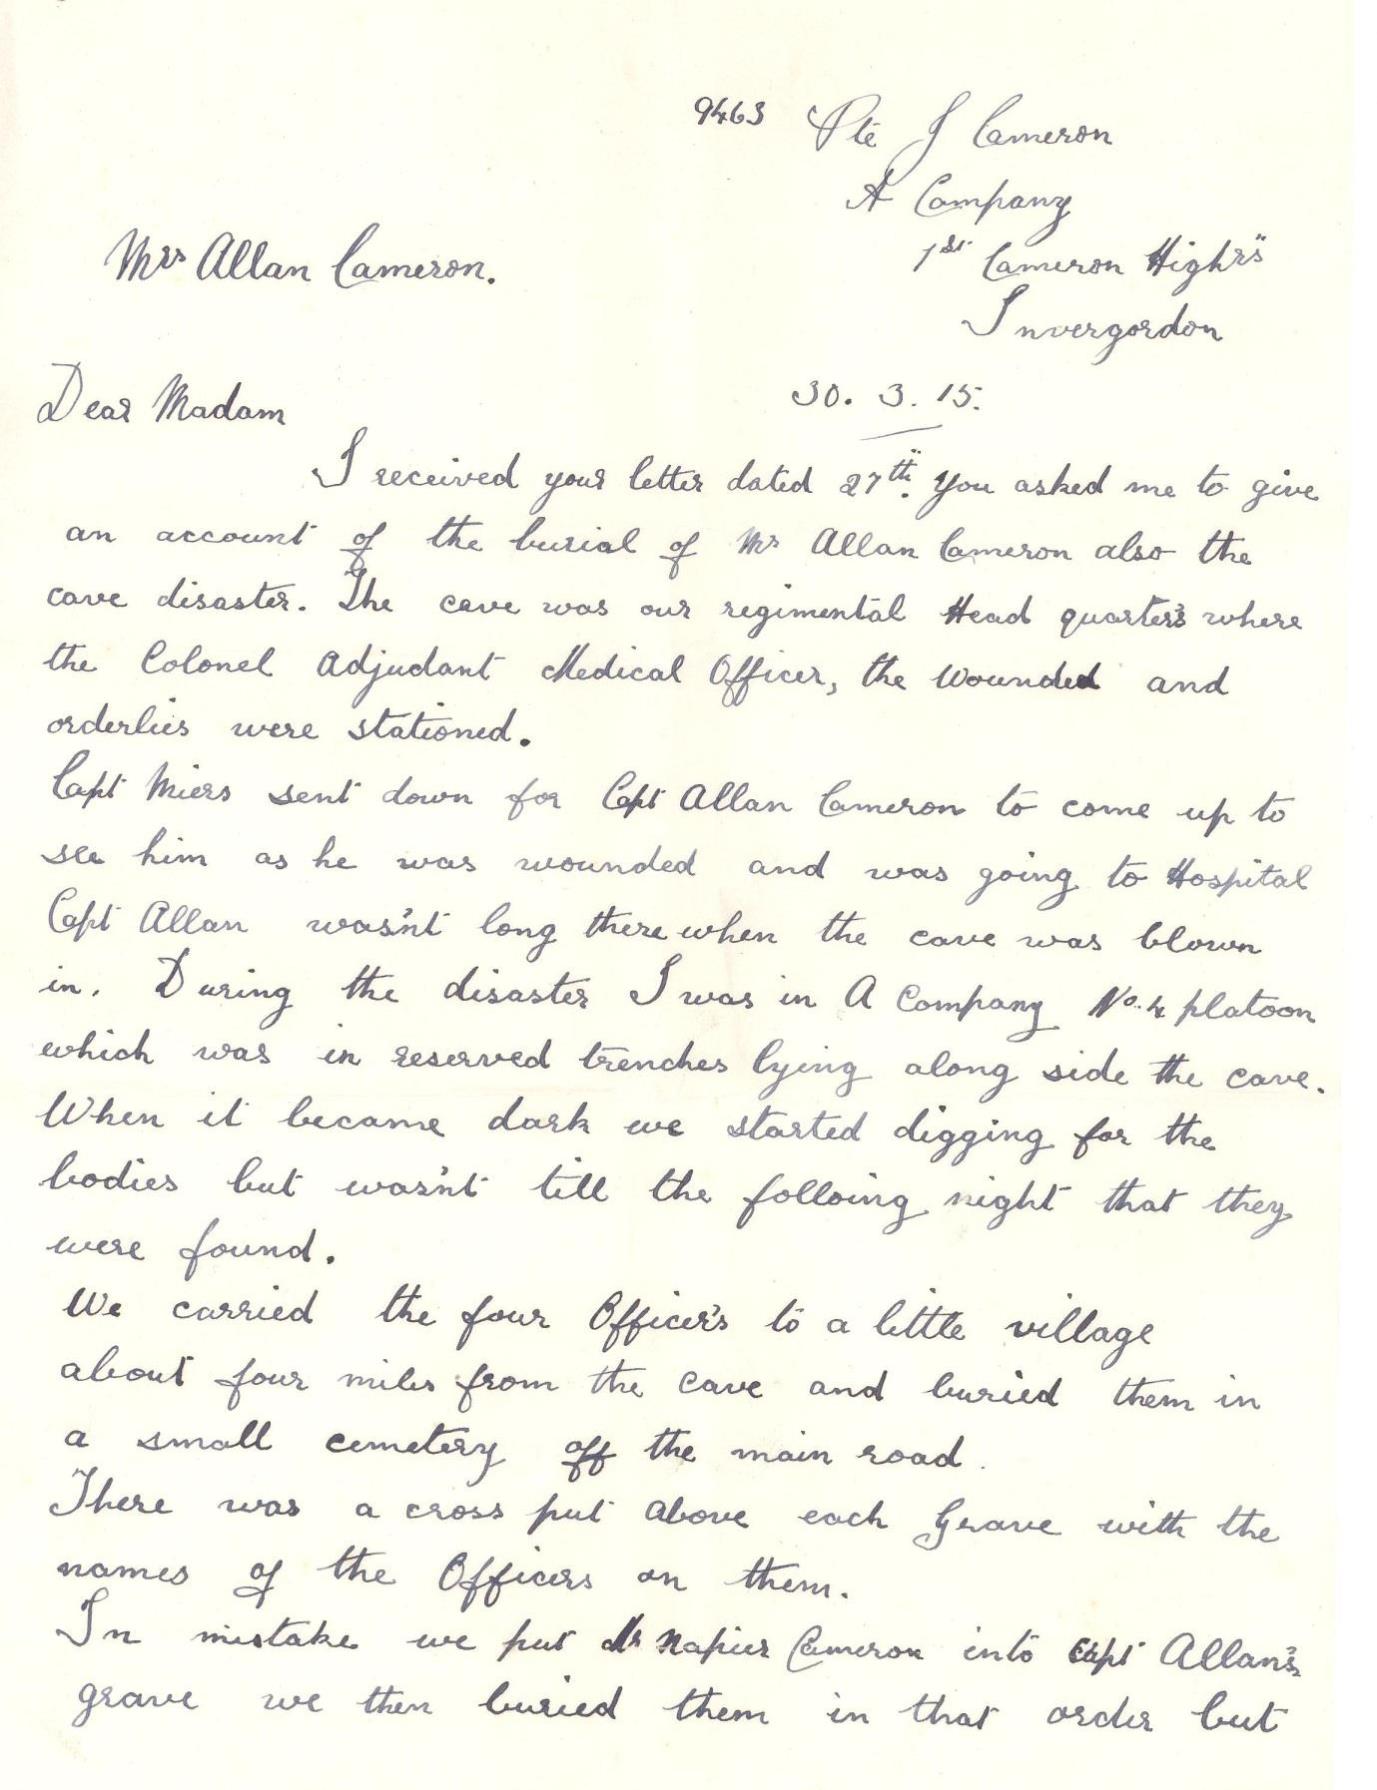 9463 Pte J Cameron
A Company
1st Cameron Highrs"
Mrs Allan Cameron.
Invergordon
30. 3. 15.
Dear Madam
I received your letter dated 27th. You asked me to give
an account of the burial of Mr Allan Cameron also the
cave disaster. The cave was our regimental Head quarter's where
the Colonel Adjudant Medical Officer, the Wounded and
orderlies were stationed.
Capt Miers sent down for Capt Allan Cameron to come up to
see him as he was wounded and was going to Hospital
Capt Allan was'nt long there when the cave was blown
in. During the disaster I was in A Company No. 4 platoon
which was in reserved trenches lying along side the cave.
When it became dark we started digging for the
bodies but was'nt till the folloing night that they
were found.
We carried the four Officer's to a little village
about four miles from the cave and buried them in
a small cemetery off the main road.
There was a cross put above each Grave with the
names of the Officers on them.
In mistake we put Mr Napier Cameron into Capt Allan's
grave we then buried them in that order but